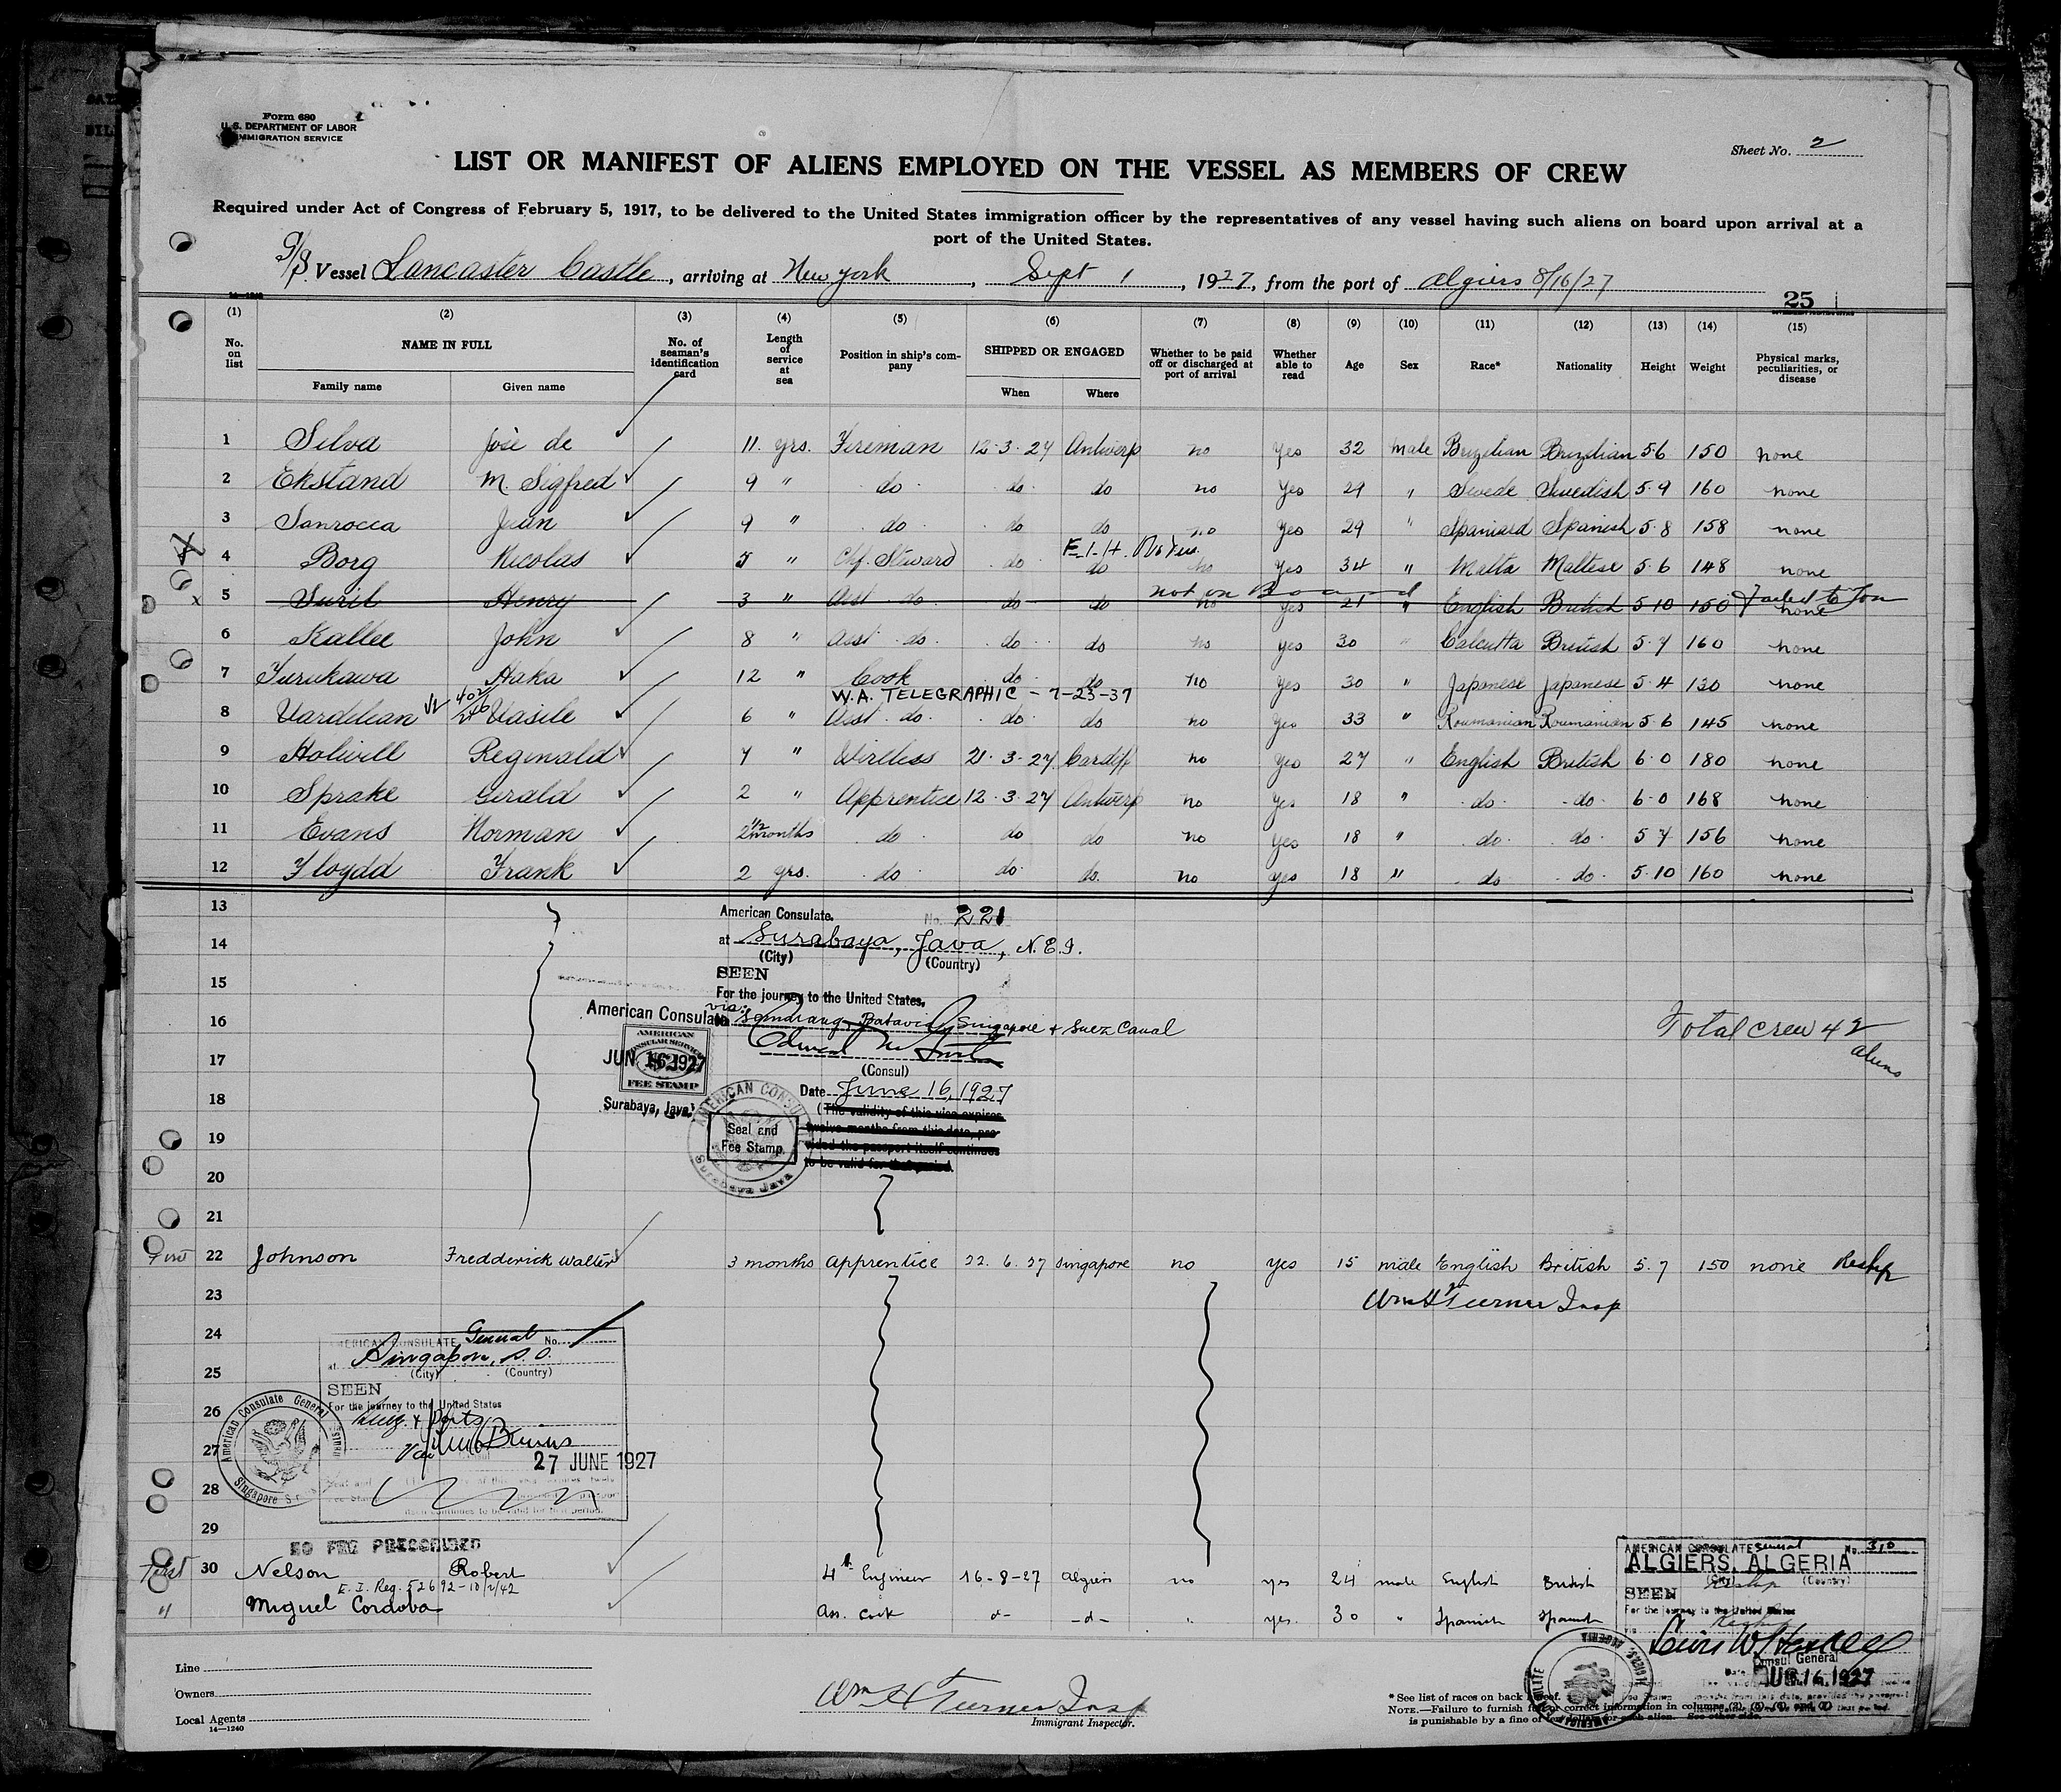 Form 680
U. S. DEPARTMENT OF LABOR
IMMIGRATION SERVICE
Sheet No. 2
LIST OR MANIFEST OF ALIENS EMPLOYED ON THE VESSEL AS MEMBERS OF CREW
Required under Act of Congress of February 5, 1917, to be delivered to the United States immigration officer by the representatives of any vessel having such aliens on board upon arrival at a
port of the United States.
S/S Vessel Lancaster Castle, arriving at New York, Sept 1, 1927, from the port of Algiers 8/16/27
25
(1) (2) (3) (4) (5) (6) (7) (8) (9) (10) (11) (12) (13) (14) (15)
No. on list NAME IN FULL Family name Given name No. of seaman's identification card Length of service at sea Position in ship's company SHIPPED OR ENGAGED When Where Whether to be paid off or discharged at port of arrival Whether able to read Age Sex Race* Nationality Height Weight Physical marks, peculiarities, or disease
1 Silva José de 11 yrs. Fireman 12-3-27 Antwerp no Yes 32 male Brazilian Brazilian 5.6 150 none
2 Ekstand M. Sigfred 9 " do do do no Yes 29 " Swede Swedish 5.9 160 none
3 Sanrocca Juan 9 " do do do no Yes 29 " Spaniard Spanish 5.8 158 none
4 Borg Nicolas 5 " Chf. Steward do do no Yes 34 " Malta Maltese 5.6 148 none
not on Board Failed to Join
5 Suril Henry 3 " Asst do do do no yes 21 " English British 5.10 150 none
6 Kallee John 8 " Asst do do do no yes 30 " Calcutta British 5.7 160 none
7 Furukawa Haka 12 " Cook do do no Yes 30 " Japanese Japanese 5.4 130 none
W.A. TELEGRAPHIC - 7-23-37
8 Vardelean Vasile 6 " Asst. do. do do no Yes 33 " Roumanian Roumanian 5.6 145 none
9 Holwill Reginald 7 " Wirlless 21.3.27 Cardiff no Yes 27 " English British 6.0 180 none
10 Sprake Girald 2 " Apprentice 12.3.27 Antwerp no Yes 18 " do do 6.0 168 none
11 Evans Norman 2 1/2 months do do do no Yes 18 " do do 5.7 156 none
12 Floydd Frank 2 yrs. do do do. no yes 18 " do do 5.10 160 none
13
14
15
16
17
18
19
20
21
American Consulate. No. 221
at Surabaya, Java, N.E.I.
(City) (Country)
SEEN
For the journey to the United States,
via: Semarang, Batavia, Singapore & Suez Canal
(Consul)
Date June 16, 1927
(The validity of this visa expires
twelve months from this date, pro-
vided the passport itself continues
to be valid for that period.
American Consulate
AMERICAN CONSULAR SERVICE
JUN 16 1927
FEE STAMP
Surabaya, Java.
AMERICAN CONSULATE
Seal and
Fee Stamp.
Surabaya Java
Total crew 42
aliens
22 Johnson Fredderick Walter 3 months Apprentice 22.6.27 Singapore no yes 15 male English British 5.7 150 none
Wm H Turner Insp
23
24
25
26
27
28
29
AMERICAN CONSULATE General No.
at Singapore, S.S.
(City) (Country)
SEEN
For the journey to the United States
27 JUNE 1927
American Consulate General
Singapore
NO FEE PRESCRIBED
First 30 Nelson Robert 4th Engineer 16-8-27 Algiers no yes 24 male English British
E.I. Reg. 52692-10/2/42
" Miguel Cordova Ass. cook -d- -d- " yes. 30 " Spanish Spanish
AMERICAN CONSULATE General No. 310
ALGIERS, ALGERIA
(City) (Country)
SEEN
For the journey to the United States
Lewis W Haskell
Consul General
Line
Owners
Local Agents
14—1240
Wm H Turner Insp
Immigrant Inspector.
* See list of races on back hereof.
NOTE.—Failure to furnish full or correct information in columns (2), (5), (6), and (7)
is punishable by a fine of ten dollars for each alien. See other side.